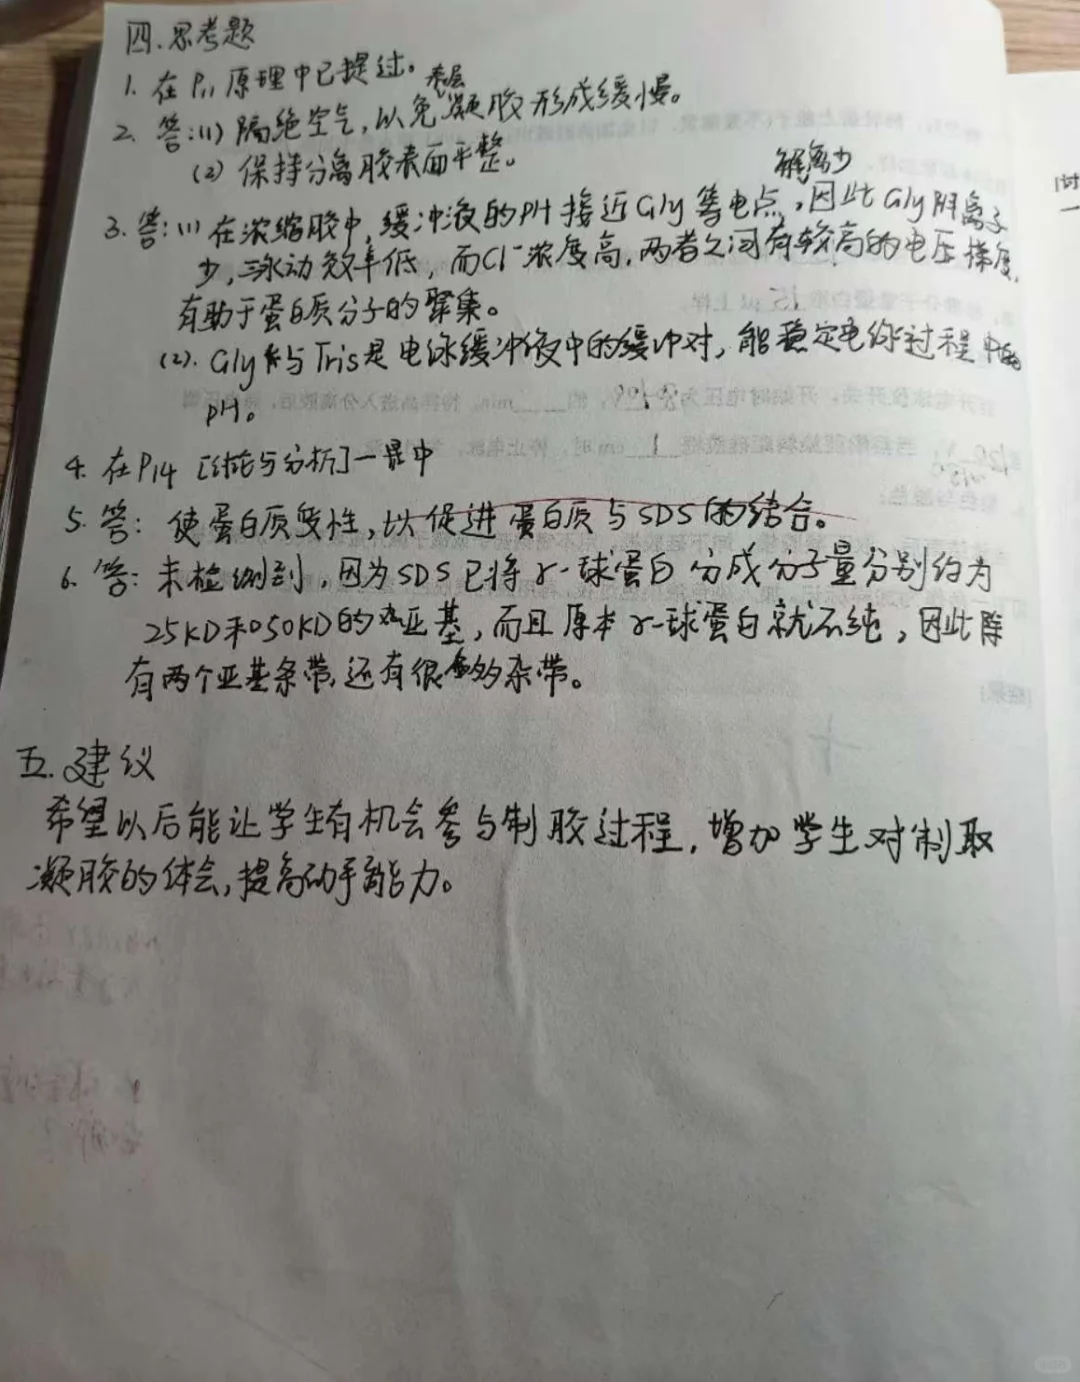 四.思考题
1. 在P11原理中已提过。
2. 答:(1) 隔绝空气,以免表层凝胶形成缓慢。
(2) 保持分离胶表面平整。
3. 答:(1) 在浓缩胶中,缓冲液的PH接近Gly等电点,解离少,因此Gly阴离子
少,泳动效率低,而Cl⁻浓度高,两者之间有较高的电压梯度,
有助于蛋白质分子的聚集。
(2). Gly与Tris是电泳缓冲液中的缓冲对,能稳定电泳过程中的
pH。
4. 在P14 [讨论与分析]一最中
5. 答: 使蛋白质变性,以促进蛋白质与SDS的结合。
6. 答: 未检测到,因为SDS已将γ-球蛋白分成分子量分别约为
25KD和50KD的亚基,而且原本γ-球蛋白就不纯,因此除
有两个亚基条带,还有很多杂带。
五.建议
希望以后能让学生有机会参与制胶过程,增加学生对制取
凝胶的体会,提高动手能力。